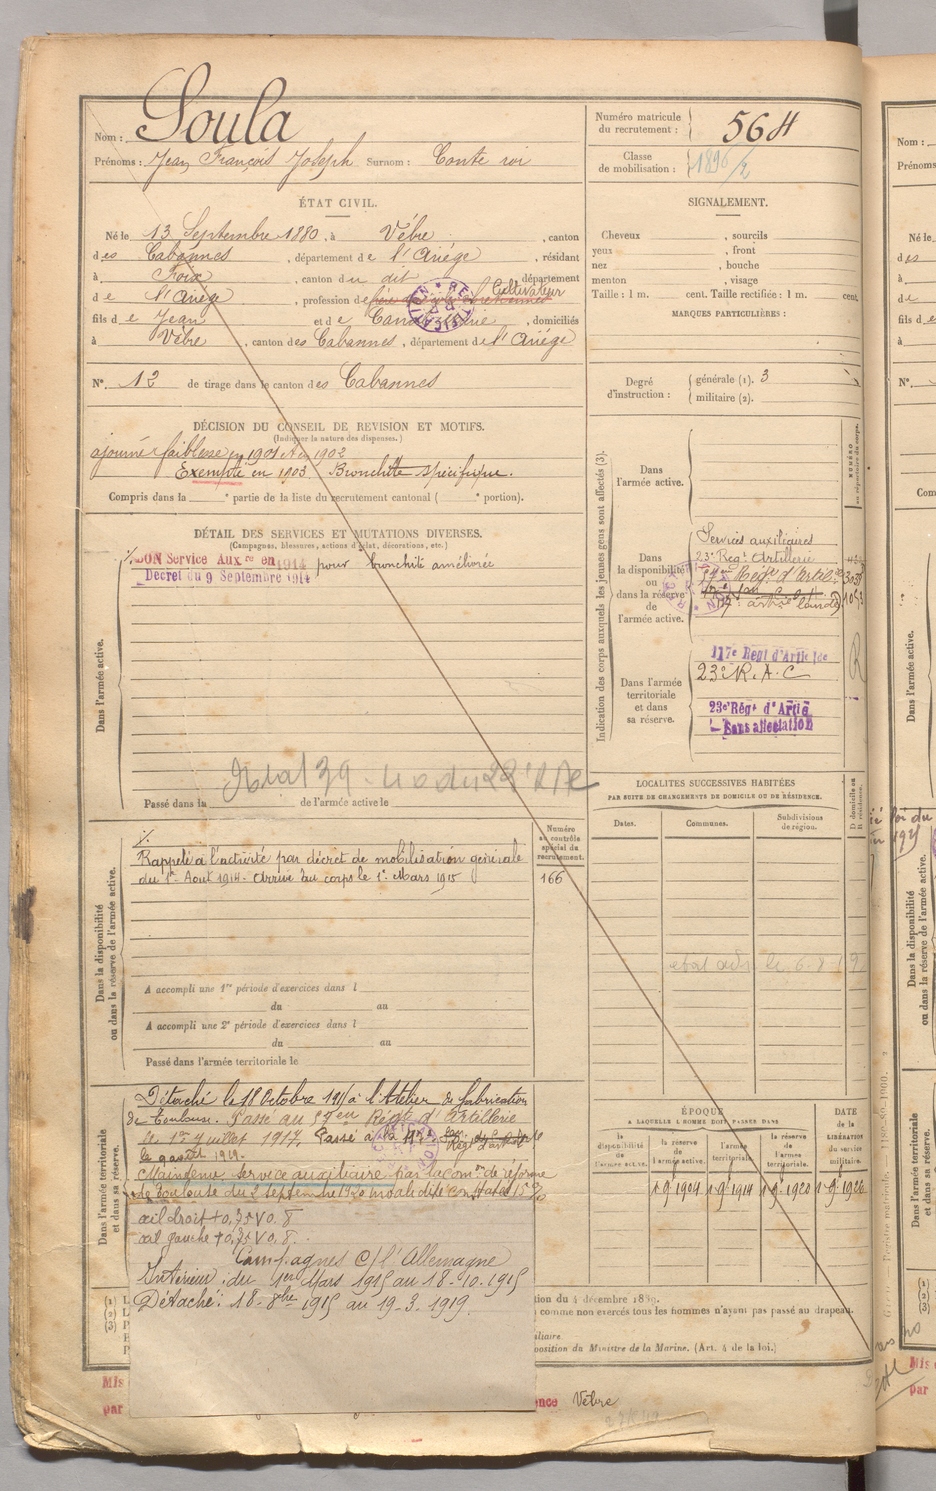 Nom : Soula
Prénoms : Jean François Joseph Surnom : Conte roi
Numéro matricule du recrutement : 564
Classe de mobilisation : 1896/2
ÉTAT CIVIL.
Né le 13 Septembre 1880, à Vèbre, canton
des Cabannes, département de l'Ariége, résidant
à Foix, canton du dit, département
de l'Ariége, profession de Cultivateur
fils de Jean et de, domiciliés
à Vèbre, canton des Cabannes, département de l'Ariége
N° 12 de tirage dans le canton des Cabannes
SIGNALEMENT.
Cheveux , sourcils
yeux , front
nez , bouche
menton , visage
Taille : 1 m. cent. Taille rectifiée : 1 m. cent.
MARQUES PARTICULIÈRES :
Degré d'instruction : générale (1). 3
militaire (2).
DÉCISION DU CONSEIL DE REVISION ET MOTIFS.
(Indiquer la nature des dispenses.)
ajourné faiblesse en 1901 1902
Exempté en 1903 Bronchite spécifique.
Compris dans la e partie de la liste du recrutement cantonal ( e portion).
DÉTAIL DES SERVICES ET MUTATIONS DIVERSES.
(Campagnes, blessures, actions d'éclat, décorations, etc.)
BON Service Auxre en 1914 pour bronchite améliorée
Décret du 9 Septembre 1914
Dans l'armée active.
Passé dans la de l'armée active le
Indication des corps auxquels les jeunes gens sont affectés (3).
NUMÉRO
au répertoire du corps.
Dans l'armée active.
Dans la disponibilité ou dans la réserve de l'armée active.
Services auxiliaires
23e Régt Artillerie
57e Régt d'Artie
Dans l'armée territoriale et dans sa réserve.
117e Regt d'Artie
23e R.A.C
23e Régt d'Artie
Sans affectation
LOCALITES SUCCESSIVES HABITÉES
PAR SUITE DE CHANGEMENTS DE DOMICILE OU DE RÉSIDENCE.
Dates. Communes. Subdivisions de région. D domicile ou R résidence.
Numéro au contrôle spécial du recrutement.
166
Dans la disponibilité ou dans la réserve de l'armée active.
Rappelé à l'activité par décret de mobilisation générale
du 1er Août 1914. Arrivé au corps le 1er Mars 1915
A accompli une 1re période d'exercices dans l
du au
A accompli une 2e période d'exercices dans l
du au
Passé dans l'armée territoriale le
Dans l'armée territoriale et dans sa réserve.
Détaché le 18 Octobre 1915 à l'Atelier de fabrication
de Toulouse. Passé au 57eme Régt d'Artillerie
le 1er Juillet 1917. Passé
le 9 août 1919.
Maintenu service auxiliaire par la com. on de réforme
de Toulouse du 2 septembre 1920
œil droit +0,75 V 0.8
œil gauche +0,75 V 0.8.
Campagnes C/ l'Allemagne
Intérieur : du 1er Mars 1915 au 18-10-1915
Détaché : 18-8bre 1915 au 19-3-1919.
ÉPOQUE
A LAQUELLE L'HOMME DOIT PASSER DANS
DATE DE LA LIBÉRATION du service militaire.
la disponibilité de l'armée active.
la réserve de l'armée active.
l'armée territoriale.
la réserve de l'armée territoriale.
1 9e 1904 1 9e 1914 1 9e 1920 1 9e 1926
comme non exercés tous les hommes n'ayant pas passé au drapeau.
position du Ministre de la Marine. (Art. 4 de la loi.)
Mis
par
ence Vèbre